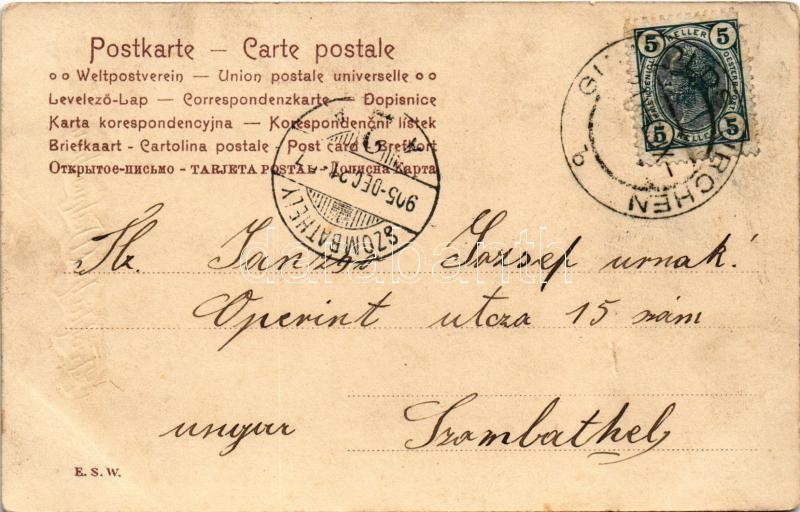 Postkarte — Carte postale
Weltpostverein — Union postale universelle
Levelező-Lap — Correspondenzkarte — Dopisnice
Karta korespondencyjna — Korespondenční lístek
Briefkaart - Cartolina postale - Post card - Brefkort
Открытое-письмо - TARJETA POSTAL - Дописна Карта
5 KELLER 5
5 KELLER 5
905-DEC.21
SZOMBATHELY
Jozsef urnak!
Operint utcza 15 szám
ungar Szombathely
E. S. W.
darabanth